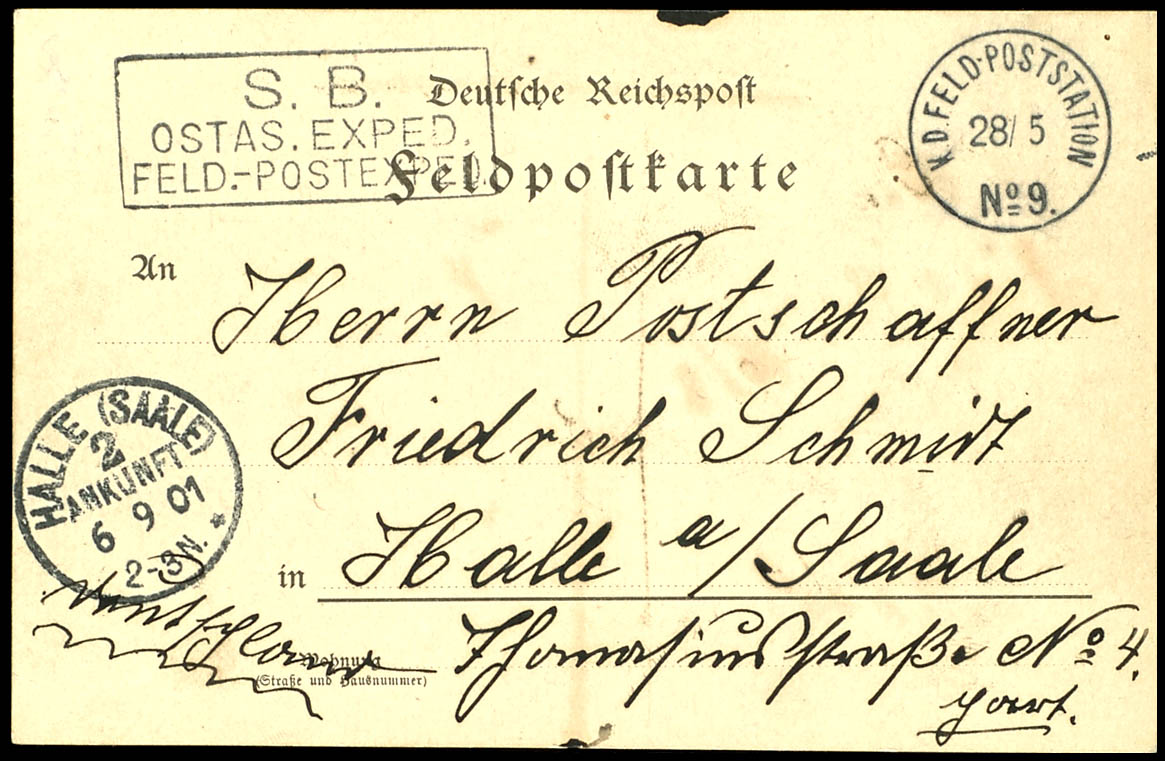 S. B.
OSTAS. EXPED.
FELD.-POSTEXPED.
Deutsche Reichspost
Feldpostkarte
K.D.FELD-POSTSTATION
28/5
No 9.
An
Herrn Postschaffner
Friedrich Schmidt
HALLE (SAALE)
2
ANKUNFT
6 9 01
2-3N.
in Halle a/Saale
Deutschland
Wohnung
(Straße und Hausnummer)
Thomasiusstraße No 4.
part.